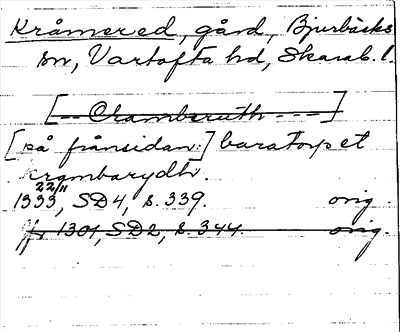 Kråmered, gård, Bjurbäcks
sn, Vartofta hd, Skarab. l.
[-- Cramberuth ---]
[på frånsidan:] baratorp et
krambarydh.
22/11
1333, SD 4, s. 339. orig.
1301, SD 2, s. 344. orig.